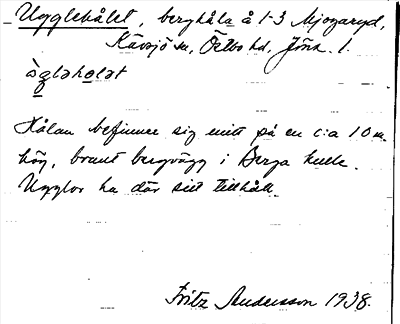 Ugglehålet, berghåla å 1-3 Mjogaryd,
Kävsjö sn, Östbo hd, Jönk. l.
òg̥ləho̥lət
Hålan befinner sig mitt på en c:a 10 m.
hög, brant bergvägg i Berga kulle.
Ugglor ha där sitt tillhåll.
Fritz Andersson 1938.